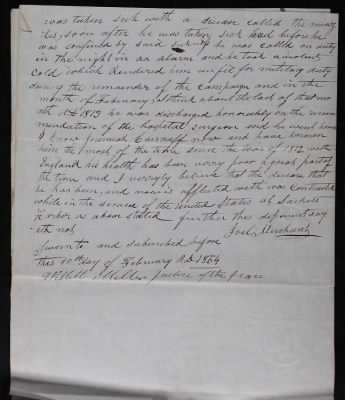 was taken sick with a disease called the meas
les, soon after he was taken sick and before he
was confined by said sickness he was called on duty
in the night in an alarm and he took a violent
cold which Rendered him unfit for military duty
during the remainder of the campaign and in the
month of February I think about the last of that mo
nth AD 1813 he was discharged honorably on the recom
mendation of the hospital surgeon and he went home
I know Jeremiah now and have known
him the most of the time since the war of 1812 with
England his health has been very poor a great part of
the time and I verily believe that the disease that
he has been, and now is afflicted with was contracted
while in the service of the united States at Sackets
Harbor as above stated further this deponent say
eth not
Joel Merchant
Sworn to and subscribed before
this 10th day of February A.D. 1854
Miller Justice of the Peace